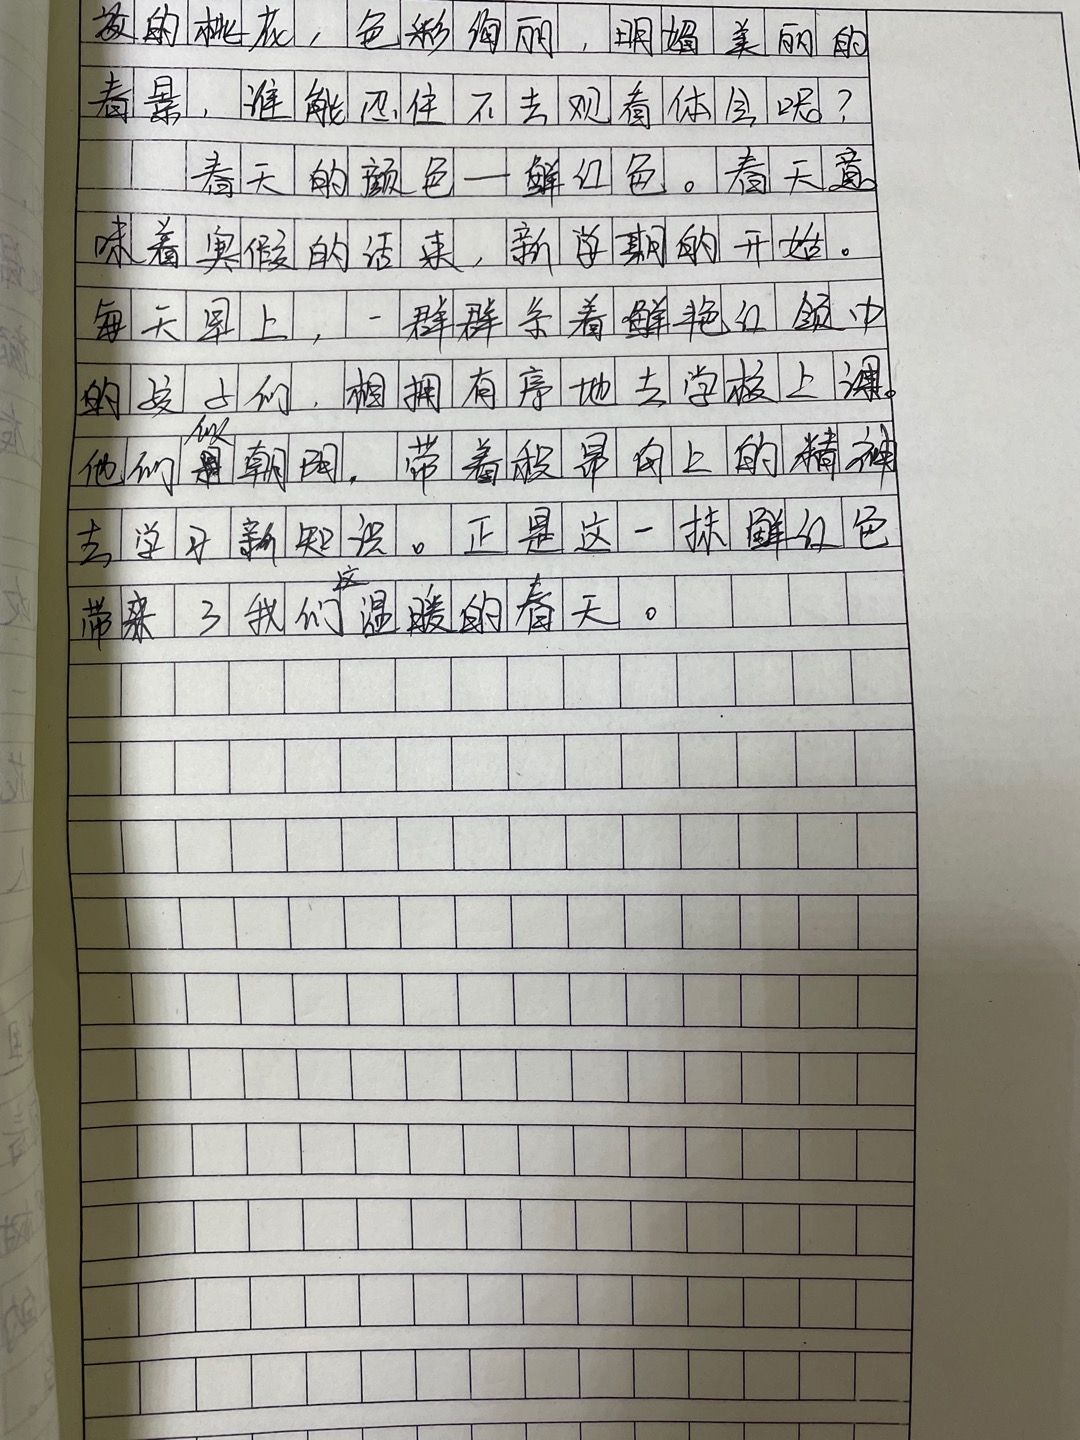 放的桃花，色彩绚丽，明媚美丽的
春景，谁能忍住不去观看体会呢？
春天的颜色一鲜红色。春天意
味着寒假的结束，新学期的开始。
每天早上，一群群系着鲜艳红领巾
的孩子们，相拥有序地去学校上课。
他们似朝阳，带着积昂向上的精神
去学习新知识。正是这一抹鲜红色
带来了我们这温暖的春天。